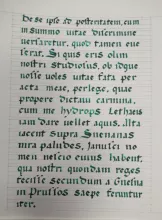 De se ipse ad posteritatem, cum
in summo vitae discrimine
versaretur, quod tamen eva
serat. Si quis eris olim
nostri studiosus, ob idque
nosse voles vitae fata per
acta meae, perlege, quae
propere dictavi carmina,
cum me hydrops Lethaeis
iam daret vellet aquis. Ulta
iacent supra Sueuanas
mira paludes, Janusci no
men nescio cuius habent,
qua nostri quondam reges
fecisse secundum a Gnesna
in Prussos saepe feruntur
iter.